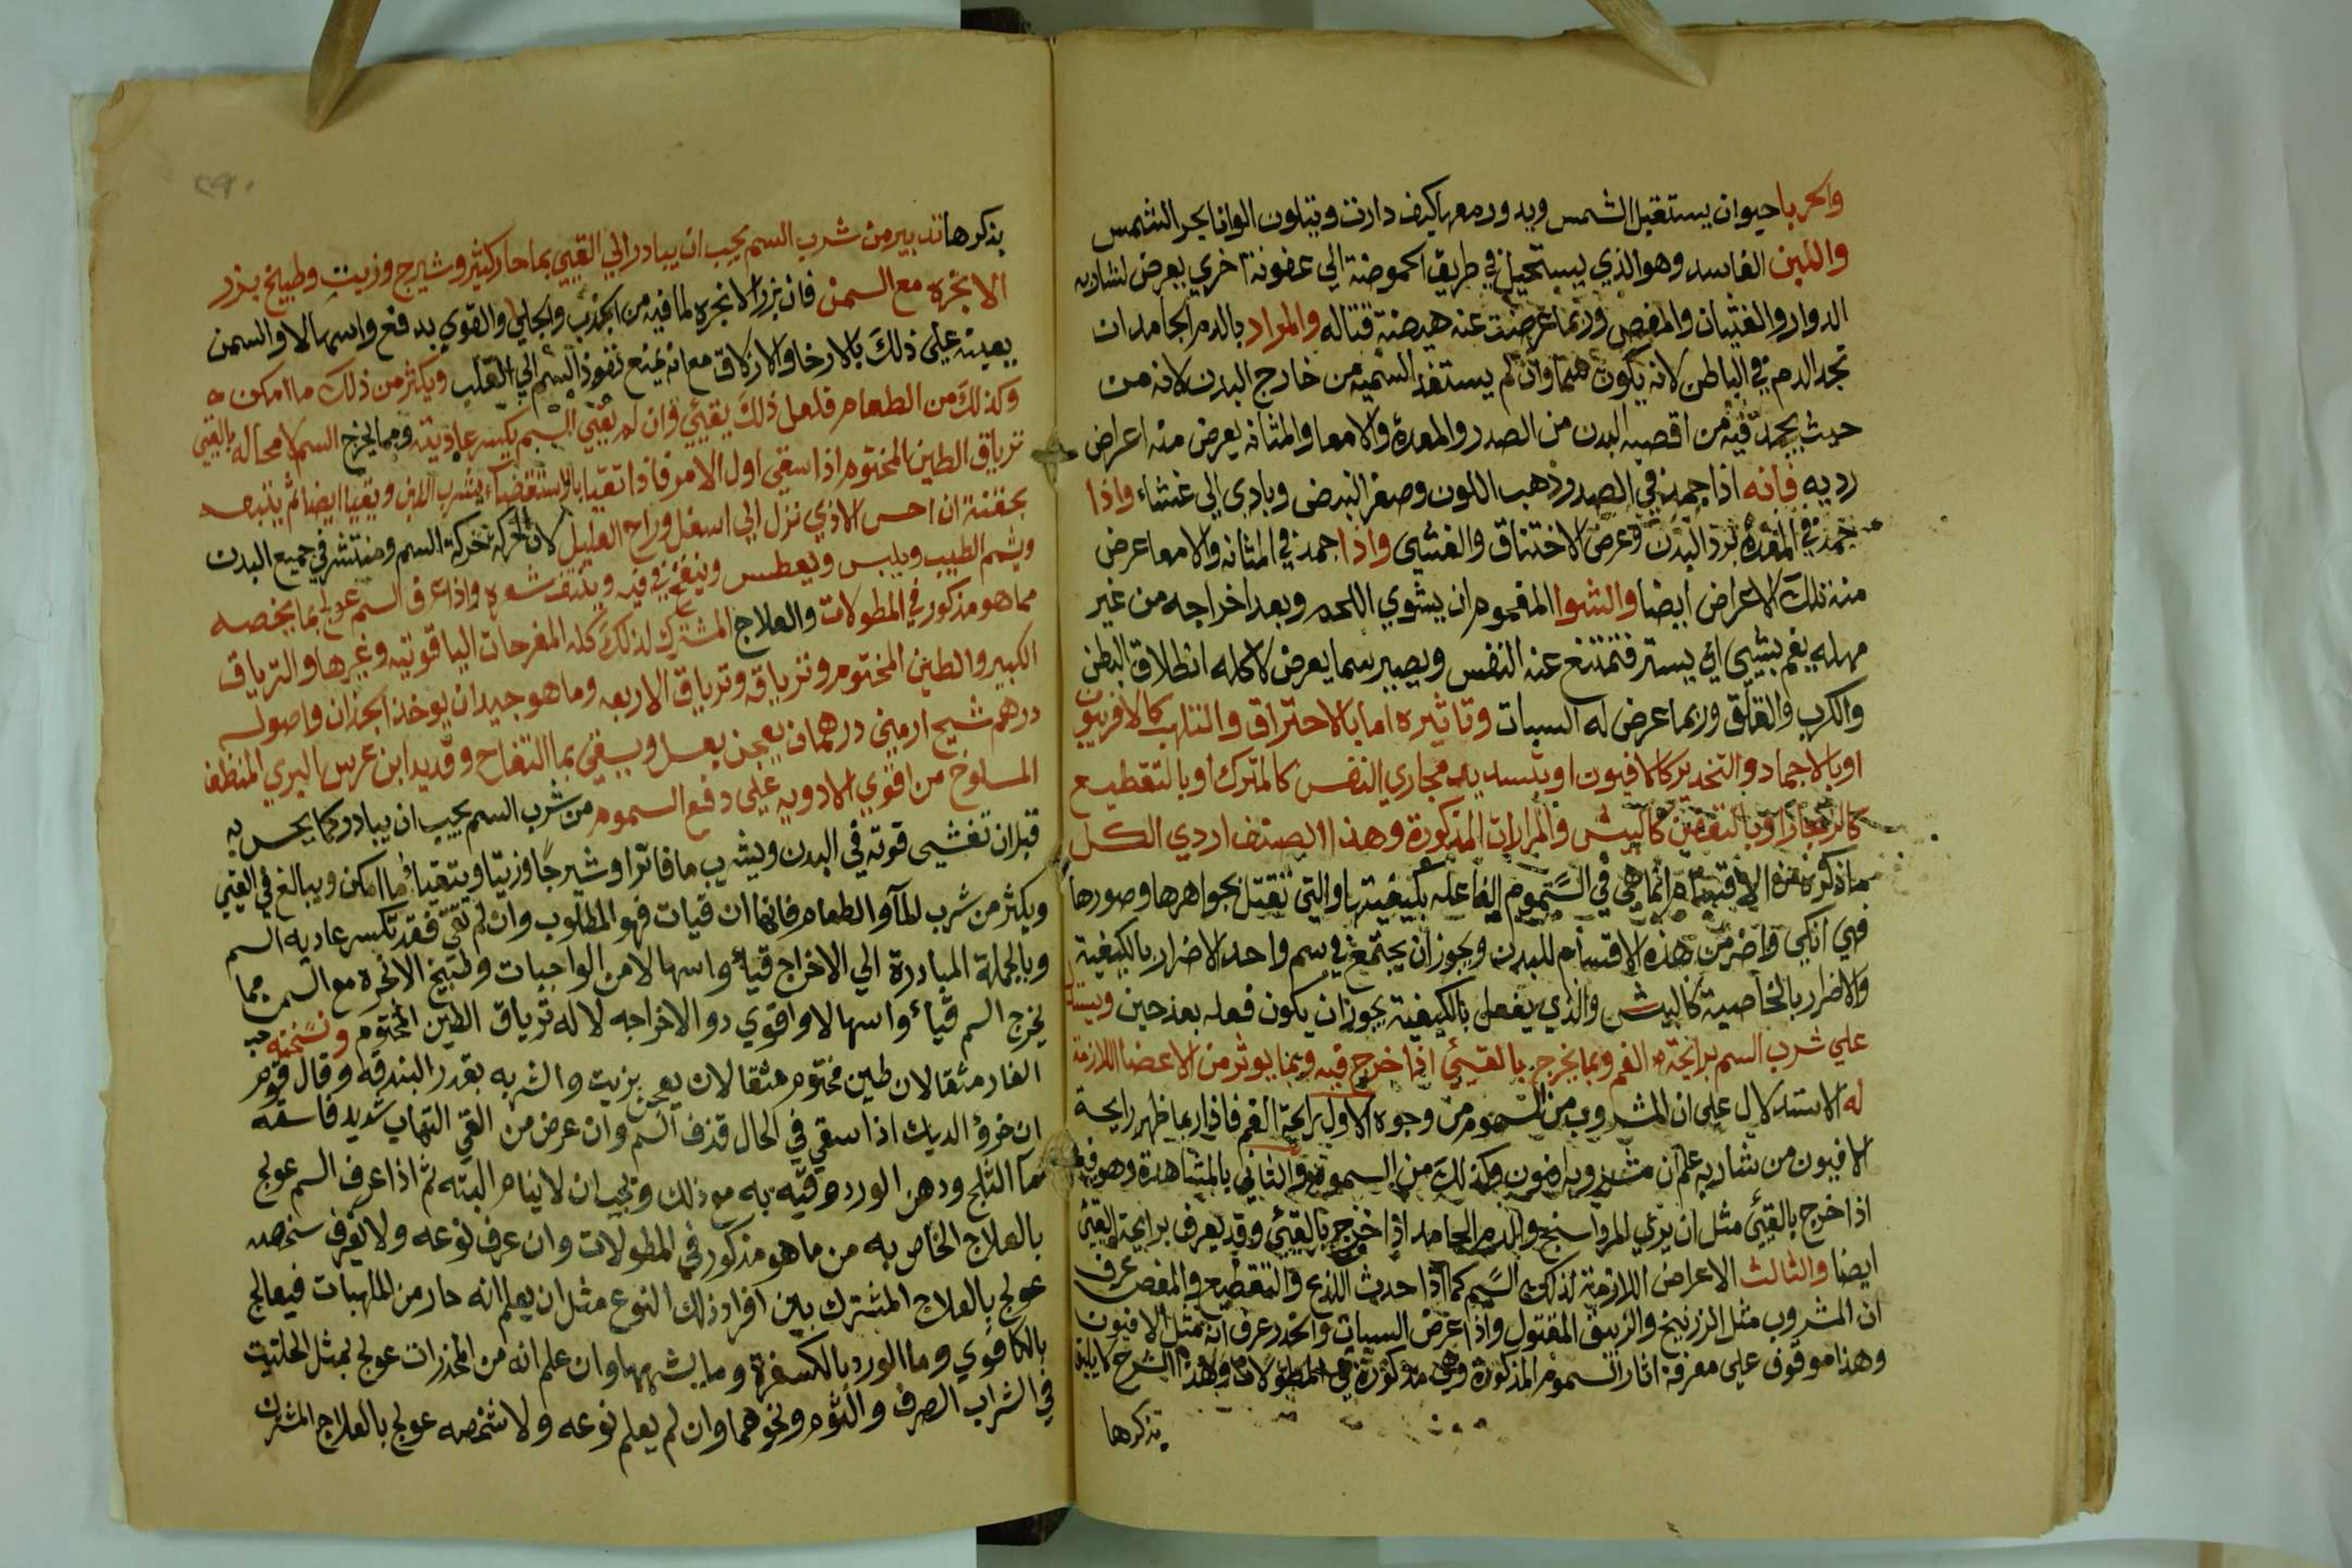 والحربا حيوان يستقبل الشمس ويدور معها كيف دارت ويتلون الوانا بحر الشمس
واللبن الفاسد وهو الذي يستحيل في طريق الحموضة الي عفونة اخري يعرض لشاربه
الدوار والغثيان والمغص وربما عرضت عنه هيضة قتاله والمراد بالدم الجامد ان
تجد الدم في الباطن لانه يكون سما وان لم يستفد السميه من خارج البدن لانه من
حيث يجمد فيه من اقصيه البدن من الصدر والمعدة والامعا والمثانه يعرض منه اعراض
رديه فانه اذا جمد في الصدر ذهب اللون وصغر النبض وبادي الي غشاء واذا
جمد في المعدة برد البدن وعرض الاختناق والغشي واذا جمد في المثانه والامعا عرض
منه تلك الاعراض ايضا والشوا المغموم ان يشوي اللحم وبعد اخراجه من غير
مهله يغم بشيي اي يستر فتمتنع عنه النفس ويصير سما يعرض لاكله انطلاق البطن
والكرب والقلق وربما عرض له السبات وتاثيره اما بالاحتراق والتلهب كالافربيون
او بالاجماد والتخدير كالافيون او بتسديد مجاري النفس كالمترك او بالتقطيع
كالزنجار او بالتعفين كالبيش والمرارات المذكورة وهذا الصنف اردي الكل
ما ذكره من الاقسام انما هي في السموم الفاعله بكيفيتها والتي تقتل بجواهرها وصورها
فهي انكي واضر من هذه الاقسام للبدن ويجوز ان يجتمع في سم واحد الاضرار بالكيفية
والاضرار بالخاصية كالبيش والذي يفعل بالكيفية يجوز ان يكون فعله بعد حين ويستدل
علي شرب السم برائحة الفم وبما يخرج بالقيئ اذا خرج فيه وبما يوثر من الاعضا اللازمة
له الاستدلال علي ان المشروب من السموم من وجوه الاول برايحة الفم فاذا ربما ظهر رايحة
الافيون من شاربه علم ان مشروبه افيون وكذلك من السموم والثاني بالمشاهدة وهو فيما
اذا خرج بالقيئ مثل ان يري المرداسنج والدم الجامد اذا خرج بالقيئ وقد يعرف برايحة القيئ
ايضا والثالث الاعراض اللازمة لذلك السم كما اذا حدث اللذع والتقطيع والمغص عرف
ان المشروب مثل الزرنيخ والزيبق المقتول واذا عرض السبات والخدر عرف انه مثل الافيون
وهذا موقوف علي معرفة اثار السموم المذكورة وهي مذكورة في المطولات وهذا الشرح لا يليق
بذكرها
٢٩٠
بذكرها تدبير من شرب السم يجب ان يبادر الي القيئ بما حار كثير وشيرج وزيت وطبيخ بزر
الانجره مع السمن فان بزر الانجره لما فيه من الجذب والجالي والقوي يدفع واسهالا والسمن
يعينه علي ذلك بالارخا والازلاق مع انه يمنع نفوذ السم الي القلب ويكثر من ذلك ما امكن
وكذلك من الطعام فلعل ذلك يقيئ وان لم يقيئ السم يكسر عاديته ومما يخرج السم لا محاله بالقيئ
ترياق الطين المختوم اذا سقي اول الامر فاذا تقيا بالاستقضاء يشرب اللبن ويتقيا ايضا ثم يتبعه
بحقنة ان احس الاذي نزل الي اسفل وراح العليل لان الحركه تحركه السم ومنتشر في جميع البدن
ويشم الطيب ويلبس ويعطس وينفخ في فيه وينتف شعره واذا عرف السم عولج بما يخصه
مما هو مذكور في المطولات والعلاج المشترك لذلك كله المفرحات الياقوتيه وغيرها والترياق
الكبير والطين المختوم وترياقه وترياق الاربعه وما هو جيد ان يوخذ انجذان واصوله
درهم شيح ارميني درهمان يعجن بعسل ويسقي بما التفاح وقديد ابن عرس البري المنظف
المسلوخ من اقوي الادويه علي دفع السموم من شرب السم يجب ان يبادر كما يحس به
قبل ان تغشي قوته في البدن ويشرب ما فاترا وشيرجا وزيتا ويتقيا ما امكن ويبالغ في القيئ
ويكثر من شرب الما والطعام فانها ان قيات فهو المطلوب وان لم تقئ فقد تكسر عاديه السم
وبالجملة المبادرة الي الاخراج قياء واسهالا من الواجبات وطبيخ الانجره مع السمن مما
يخرج السم قياء واسهالا واقوي دوا لاخراجه لاله ترياق الطين المختوم ونسخته حب
الغار مثقالان طين مختوم مثقالان يعجن بزيت والشربه بقدر البندقه وقال قوم
ان خرؤ الديك اذا سقي في الحال قذف السم وان عرض من القي التهاب شديد فاسقه
مآ الثلج ودهن الورد وقيه به مع ذلك ويجب ان لا ينام البته ثم اذا عرف السم عولج
بالعلاج الخاص به من ما هو مذكور في المطولات وان عرف نوعه ولا يعرف شخصه
عولج بالعلاج المشترك بين افراد ذلك النوع مثل ان يعلم انه حار من الملهبات فيعالج
بالكافوي وما الورد بالكسفرة وما يشبهها وان علم انه من المخدرات عولج بمثل الحلتيت
في الشراب الصرف والثوم ونحوهما وان لم يعلم نوعه ولا شخصه عولج بالعلاج المشترك